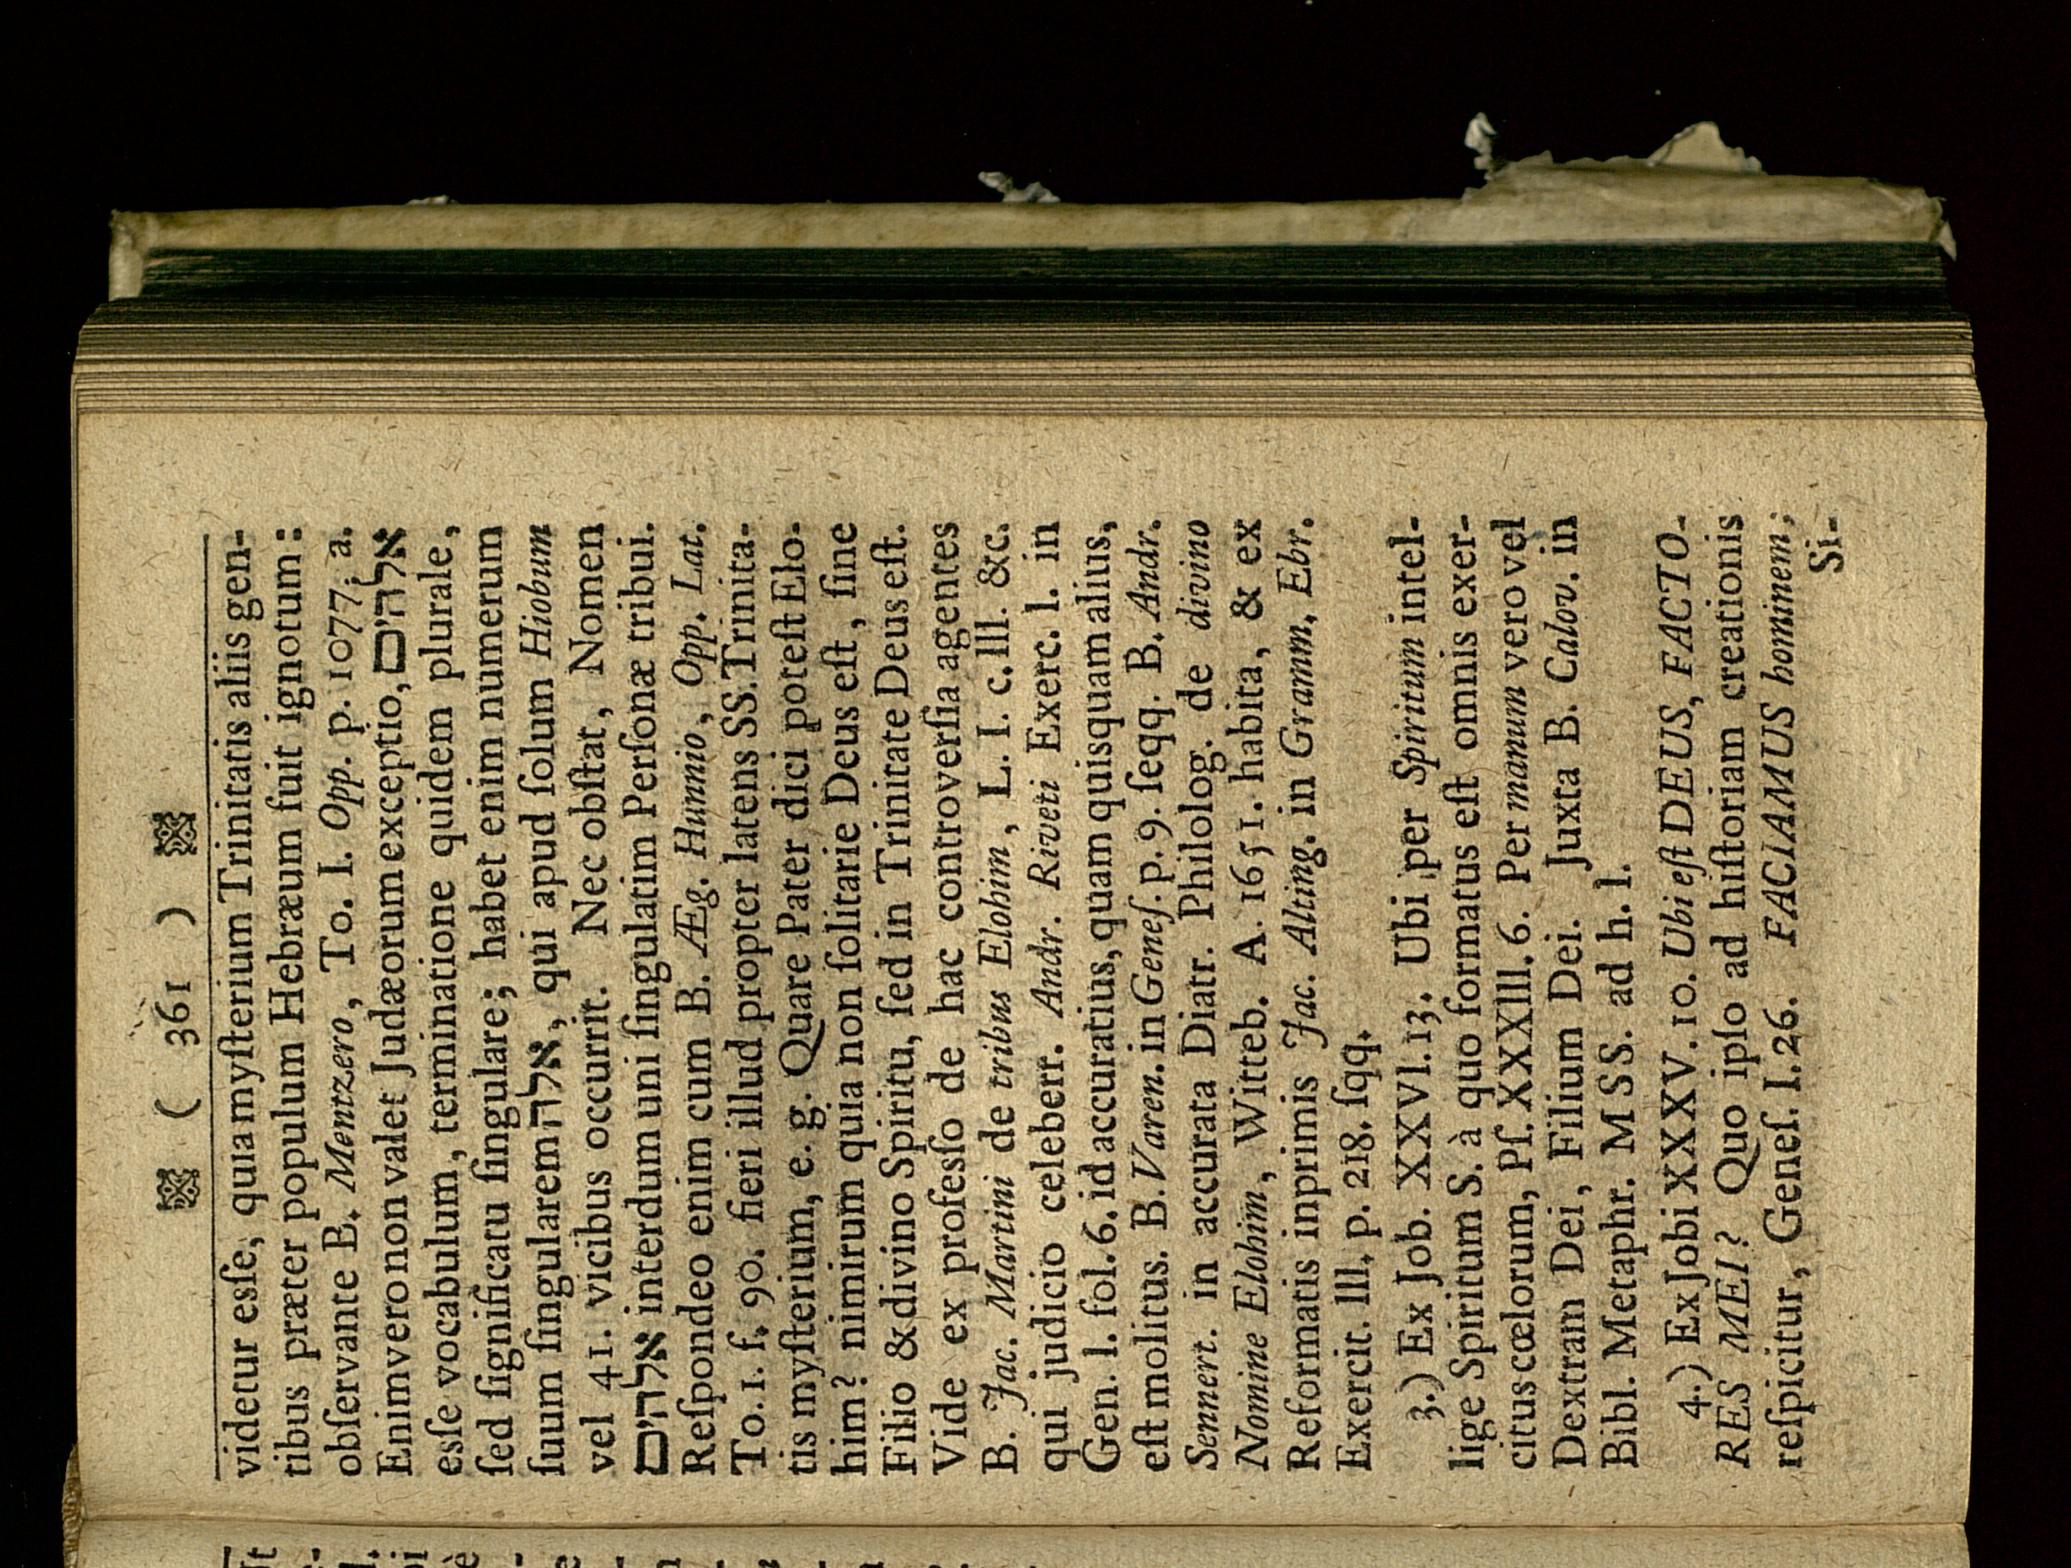 ( 361 )
videtur esſe, quia myſterium Trinitatis aliis gen-
tibus præter populum Hebræum fuit ignotum:
obſervante B. Mentzero, To. I. Opp. p. 1077. a.
Enimvero non valet Judæorum exceptio, אלהים
esſe vocabulum, terminatione quidem plurale,
ſed ſignificatu ſingulare; habet enim numerum
ſuum ſingularem אלה, qui apud ſolum Hiobum
vel 41. vicibus occurrit. Nec obſtat, Nomen
אלהים interdum uni ſingulatim Perſonæ tribui.
Reſpondeo enim cum B. Æg. Hunnio, Opp. Lat.
To. 1. f. 90. fieri illud propter latens SS. Trinita-
tis myſterium, e. g. Quare Pater dici poteſt Elo-
him? nimirum quia non ſolitarie Deus eſt, ſine
Filio & divino Spiritu, ſed in Trinitate Deus eſt.
Vide ex profesſo de hac controverſia agentes
B. Jac. Martini de tribus Elohim, L. I. c. III. &c.
qui judicio celeberr. Andr. Riveti Exerc. I. in
Gen. I. fol. 6. id accuratius, quam quisquam alius,
eſt molitus. B. Varen. in Geneſ. p. 9. ſeqq. B. Andr.
Sennert. in accurata Diatr. Philolog. de divino
Nomine Elohim, Witteb. A. 1651. habita, & ex
Reformatis inprimis Jac. Alting. in Gramm. Ebr.
Exercit. III. p. 218. ſqq.
3.) Ex Job. XXVI. 13. Ubi per Spiritum intel-
lige Spiritum S. à quo formatus eſt omnis exer-
citus cœlorum, Pſ. XXXIII. 6. Per manum vero vel
Dextram Dei, Filium Dei. Juxta B. Calov. in
Bibl. Metaphr. MSS. ad h. l.
4.) Ex Jobi XXXV. 10. Ubi eſt DEUS, FACTO-
RES MEI? Quo ipſo ad hiſtoriam creationis
reſpicitur, Geneſ. I. 26. FACIAMUS hominem;
Si-